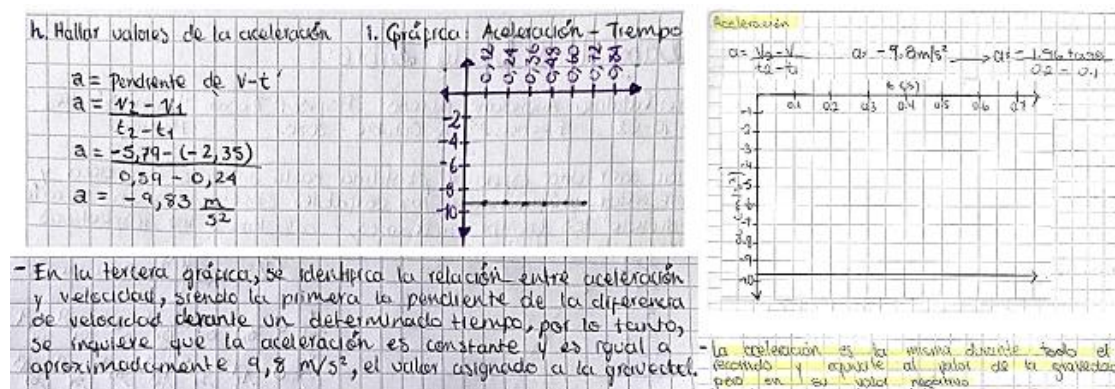 h. Hallar valores de la aceleración
a = Pendiente de v-t
a = v2 - v1
t2 - t1
a = -5,79 - (-2,35)
0,59 - 0,24
a = -9,83 m
s2
i. Gráfica: Aceleración - Tiempo
0,12 0,24 0,36 0,48 0,60 0,72 0,84
-2
-4
-6
-8
-10
- En la tercera gráfica, se identifica la relación entre aceleración
y velocidad, siendo la primera la pendiente de la diferencia
de velocidad durante un determinado tiempo, por lo tanto,
se inquiere que la aceleración es constante y es igual a
aproximadamente 9,8 m/s², el valor asignado a la gravedad.
Aceleración
a = v2 - v a = -9.8m/s² → a = -1.96 +
t2 - t1 0.2 - 0.1
t (s)
0.1 0.2 0.3 0.4 0.5 0.6 0.7
-1
-2
-3
-4
-5
-6
-7
-9
-10
- La aceleración es la misma durante todo el
recorrido y equivale al valor de la gravedad
pero en su valor negativo